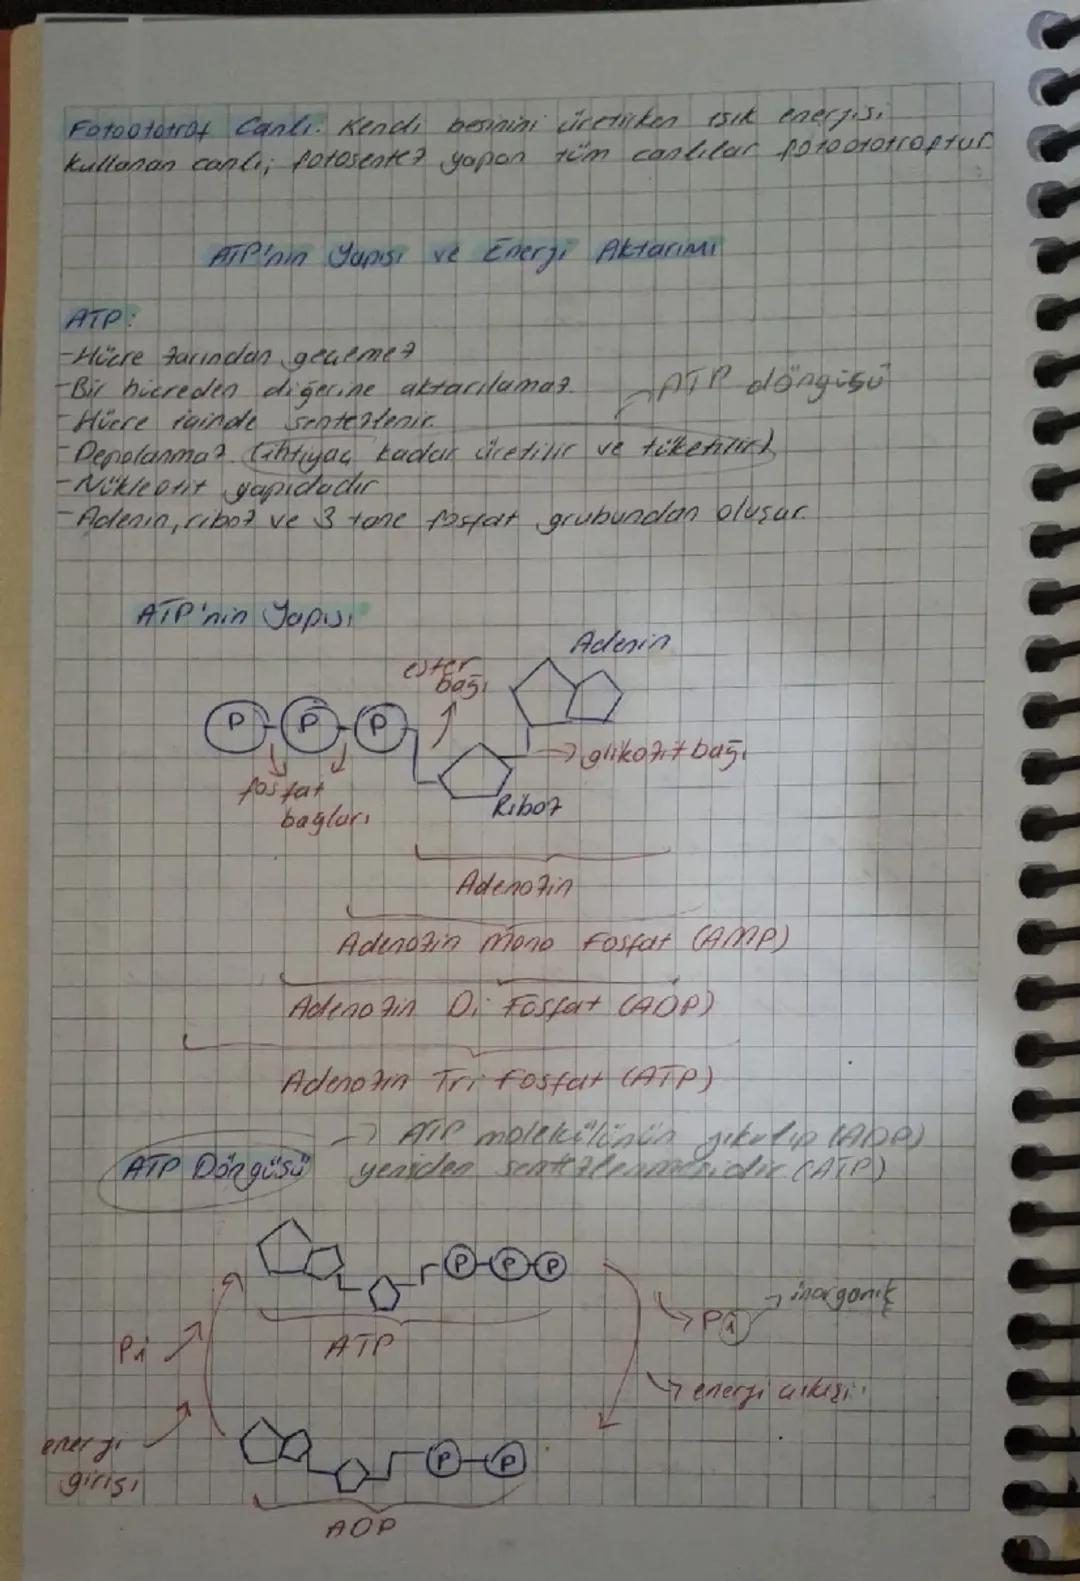 Fotoototrof Canlı: Kendi besinini üretirken ışık enerjisi
kullanan canlı; fotosentez yapan tüm canlılar fotoototroftur.
ATP'nin Yapısı ve Enerji Aktarımı
ATP:
-Hücre zarından geçemez
-Bir hücreden diğerine aktarılamaz.
ATP döngüsü
-Hücre içinde sentezlenir.
-Depolanmaz. (ihtiyaç kadar üretilir ve tüketilir)
-Nükleotit yapıdadır
-Adenin, riboz ve 3 tane fosfat grubundan oluşur.
ATP'nin Yapısı
Adenin
ester
bağı
P P P
glikozit bağı
fosfat
bağları
Riboz
Adenozin
Adenozin Mono Fosfat (AMP)
Adenozin Di Fosfat (ADP)
Adenozin Tri Fosfat (ATP)
ATP Döngüsü
→ ATP molekülünün yıkılıp (ADP)
yeniden sentezlenmesidir. (ATP)
P P P
inorganik
Pi
ATP
Pi
energi çıkışı
energi
girişi
P P
ADP